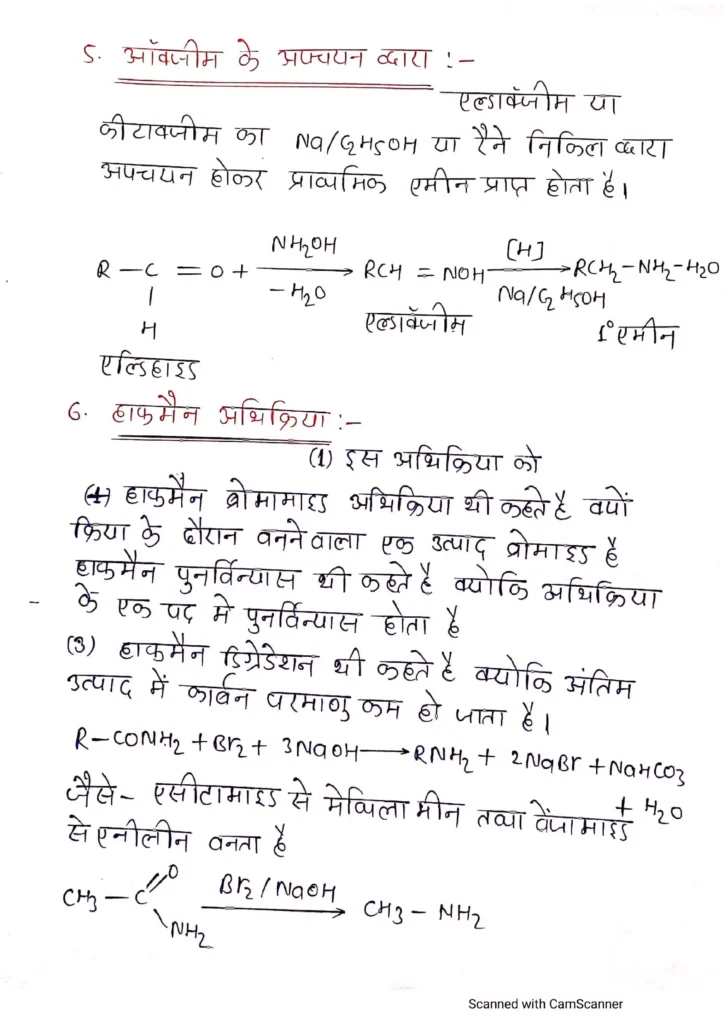 5. ऑक्जीम के अपचयन द्वारा :-
एल्डाक्जीम या
कीटाक्जीम का Na/C2H5OH या रैने निकिल द्वारा
अपचयन होकर प्राथमिक एमीन प्राप्त होता है।
NH2OH [H]
R — C = O + ⟶ RCH = NOH ⟶ RCH2–NH2–H2O
| – H2O Na/C2H5OH
H एल्डाक्जीम 1° एमीन
एल्डिहाइड
6. हाफमैन अभिक्रिया :–
(1) इस अभिक्रिया को
(1) हाफमैन ब्रोमामाइड अभिक्रिया भी कहते है क्यों
क्रिया के दौरान बनने वाला एक उत्पाद ब्रोमाइड है
हाफमैन पुनर्विन्यास भी कहते है क्योकि अभिक्रिया
– के एक पद मे पुनर्विन्यास होता है
(3) हाफमैन डिग्रेडेशन भी कहते है क्योकि अंतिम
उत्पाद में कार्बन परमाणु कम हो जाता है।
R–CONH2 + Br2 + 3NaOH ⟶ RNH2 + 2NaBr + NaHCO3
+ H2O
जैसे – एसीटामाइड से मेथिला मीन तथा बेंजामाइड
से एनीलीन बनता है
O
CH3 – C Br2 / NaOH ⟶ CH3 – NH2
NH2
Scanned with CamScanner